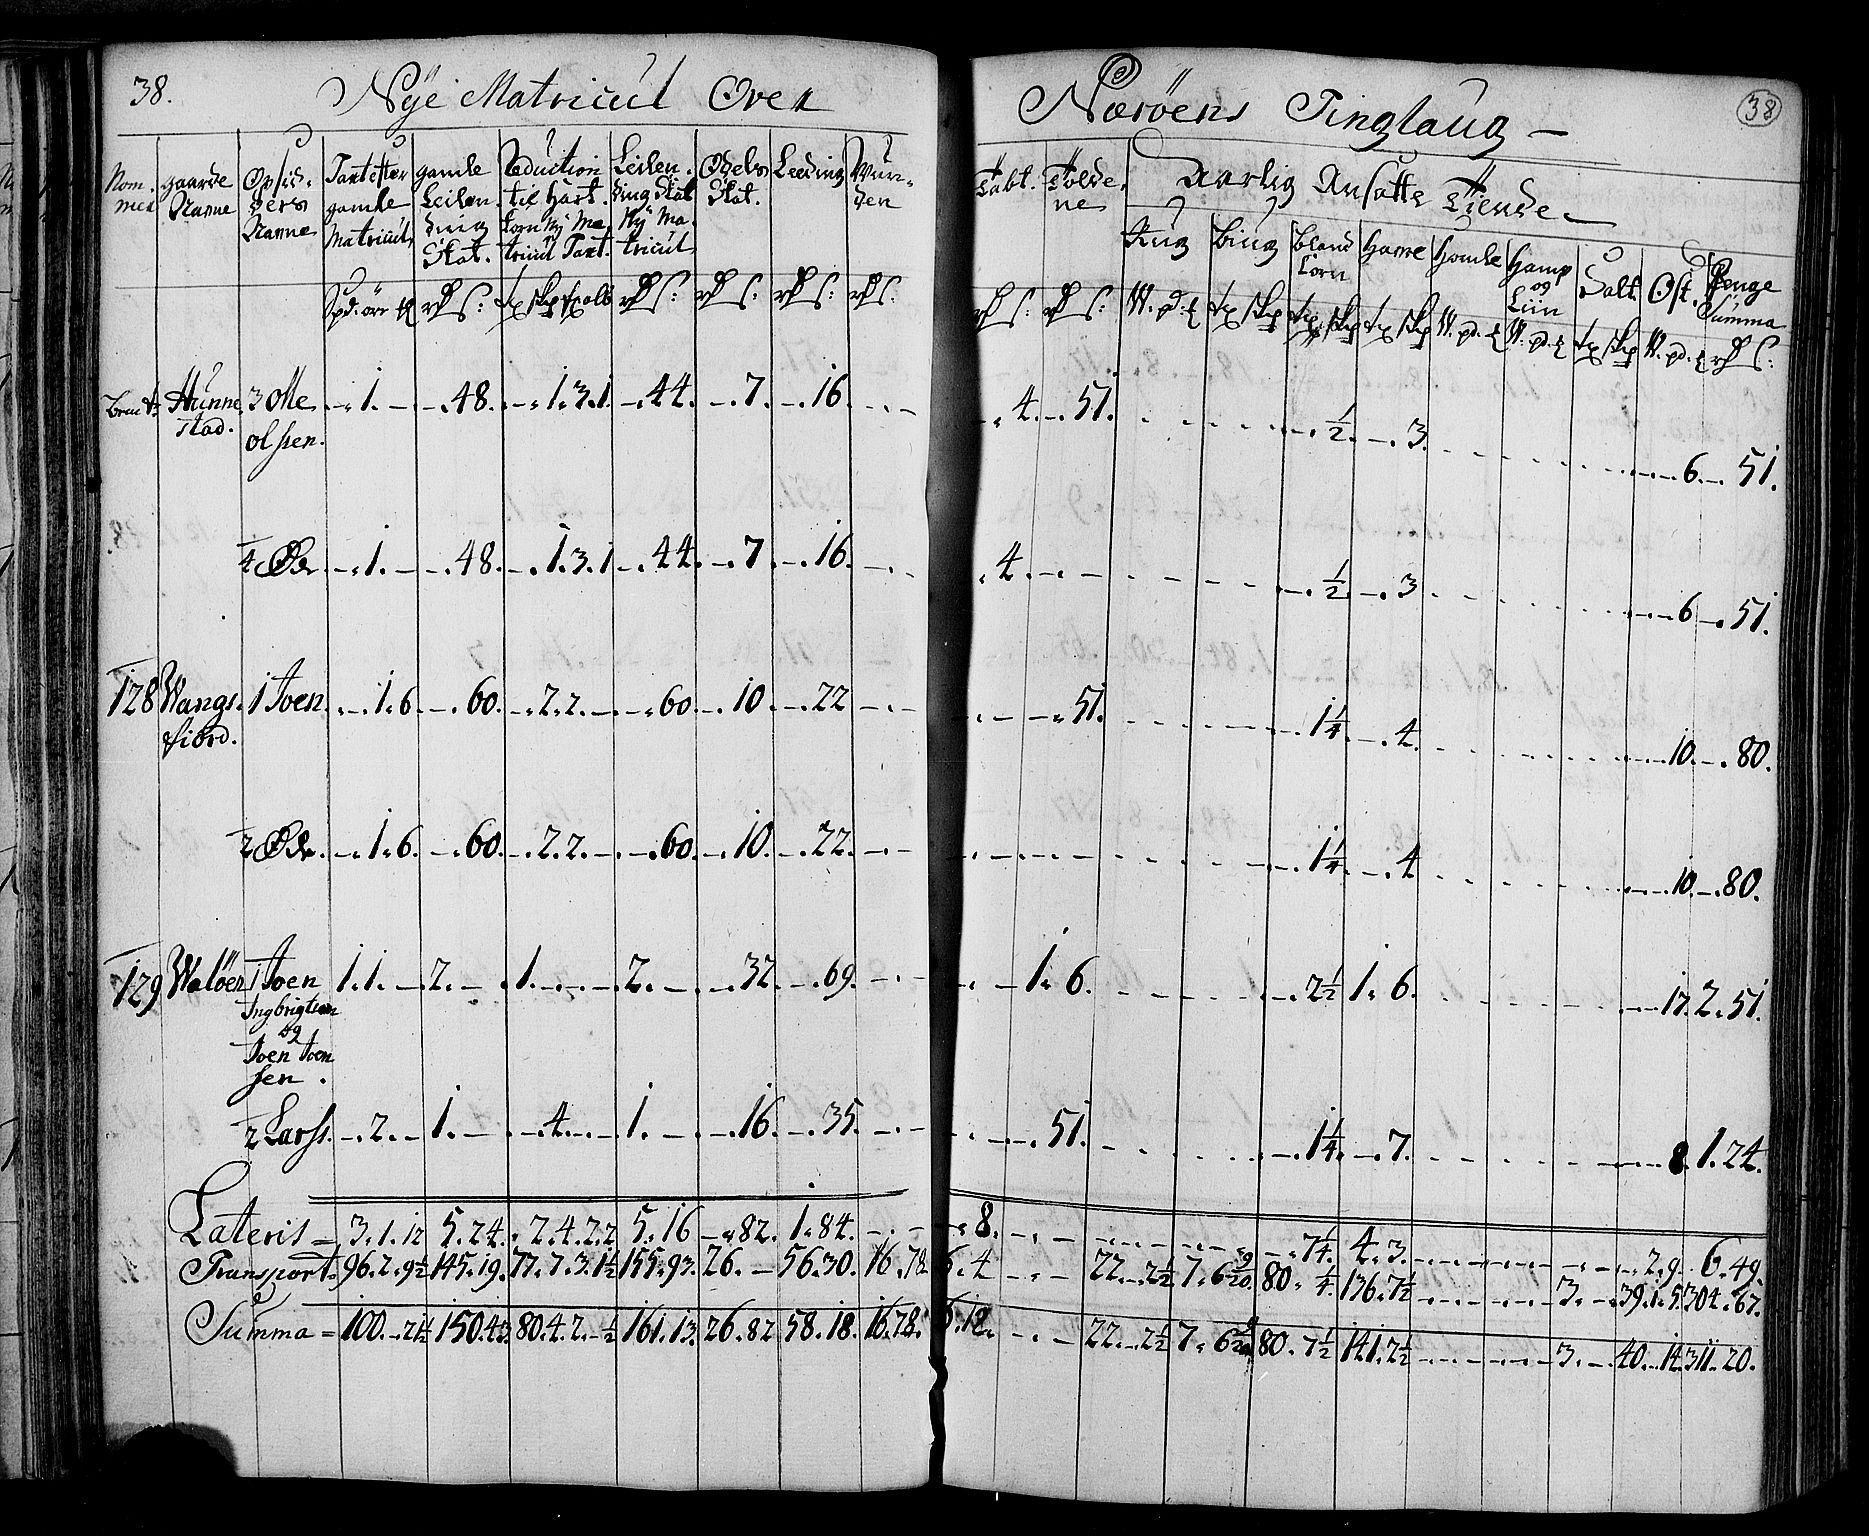 38. Nÿe Matricul Over Nærøens Tinglaug — 38
Nom. mer | gaarde Nanne | Opsid. dern Nanne | Taxt efter gamle Matricul | gamle Leilen. ding Skat. | Reduction til Hart. korn Nÿ Ma. tricul Taxt. | Leilen. ding Skat Nÿ Ma. tricul | Odels Skat. | Leeding | Wiiſ-
Årlig Ansatte Tiende
Rug | Biug | Bland Corn | Havre | Homle | Hamp og Liin | Salt. | Ost. | Penge Summa
Hunne stad. 3 Olle olssen. 1. 48. 1. 3. 1 44. 7. 16 4. 51. ½ 3. 6. 51.
4 Øde 1. 48. 1. 3. 1 44. 7 16. 4. ½ 3 6 51.
128 Wangs. fiord. 1 Joen 1. 6 60. 2. 2. 60. 10. 22 51. 1¼ 4. 10. 80.
2 Øde 1. 6. 60. 2. 2. 60. 10. 22. 1¼ 4 10. 80.
129 Waløen 1 Joen Ingbrigtsen og Joen Joen sen. 1. 1. 2. 1. 2. 32. 69. 1. 6. 2½ 1. 6. 17. 2. 51.
2 Larss. 2. 1. 4. 1. 16. 35. 51. 1¼ 7. 8. 1. 24.
Lateris 3. 1. 12 5. 24. 2. 4. 2. 2 5. 16 82. 1. 84. 8. 7¼ 4. 3. 2. 9. 6. 49.
Transport 96. 2. 9½ 145. 19. 77. 7. 3. 1½ 155. 93. 26. 56. 30. 16. 78 6. 4 22. 2½ 7. 6 80. ¼ 136. 7½ 3. 39. 1. 5. 304. 67.
Summa 100. 21½ 150. 43. 80. 4. 2. ½ 161. 13. 26. 82 58. 18. 16. 78. 6. 12. 22. 2½ 7. 6 80. 7½ 141. 2½ 3. 40. 14. 311. 20.